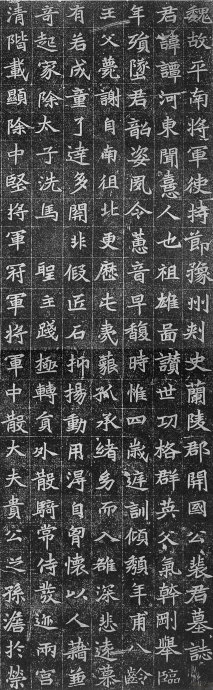 魏故平南將軍使持節豫州刾史蘭陵郡開國公裴君墓誌
君諱譚河東聞憙人也祖雄啚讃世功格群英父氣幹剛舉臨
年殞墜君韶姿夙令蕙音早馥時惟四歲違訓傾頹年甫八齡
王父薨謝自南徂北更歷屯夷藐孤承緒多而入雖深悲遠慕
有若成童了達多開非假匠石抑揚動用淂自曾懷以人藉並
竒起家除太子洗馬聖主踐極轉負外散騎常侍發迹兩宮
清階載顯除中堅將軍冠軍將軍中散大夫貴公之孫澹於榮